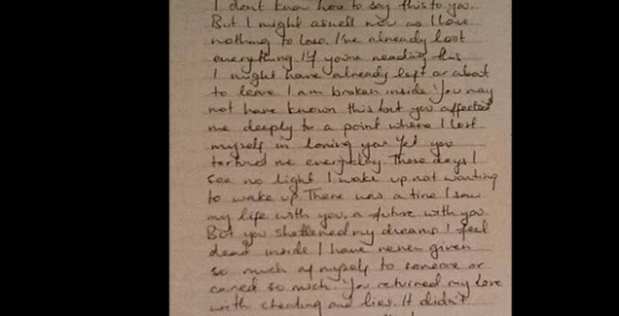 I dont know how to say this to you
But I might aswell now as I have
nothing to lose. I've already lost
everything. If you're reading this
I might have already left or about
to leave. I am broken inside. You may
not have known this but you affected
me deeply to a point where I lost
myself in loving you. Yet you
tortured me everyday. These days I
see no light I wake up not wanting
to wake up. There was a time I saw
my life with you, a future with you.
But you shattered my dreams. I feel
dead inside. I have never given
so much of myself to someone or
cared so much. You returned my love
with cheating and lies. It didn't